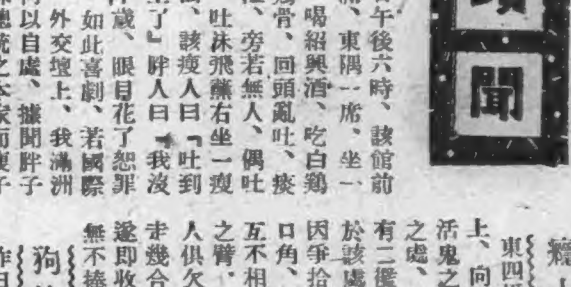 聞
午後六時、該館前
東隅一席、坐一
喝紹興酒、吃白鷄
骨、回頭亂吐、痰
旁若無人、偶吐
吐沫飛蘸右坐一瘦
該瘦人曰『吐到
了』胖人曰『我沒
歲、眼目花了恕罪
如此喜劇、若國際
外交壇上、我滿洲
以自處、據聞胖子
之本家而瘦子
東四
上、向
活鬼之
之處、
有二
於該處
因爭拾
口角、
互不相
之臂、
人俱欠
幾合
遂即收
無不捧
狗
昨日